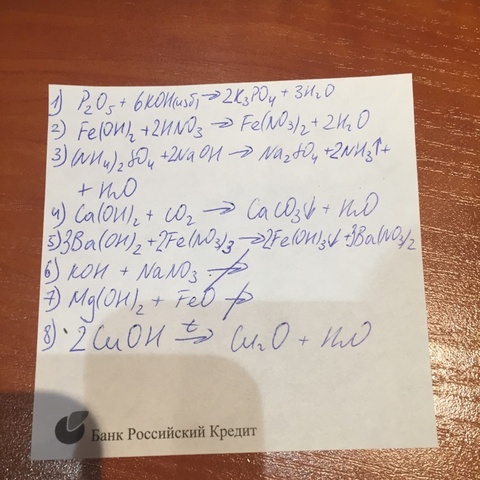 1) P₂O₅ + 6KOH(изб) → 2K₃PO₄ + 3H₂O
2) Fe(OH)₂ + 2HNO₃ → Fe(NO₃)₂ + 2H₂O
3) (NH₄)₂SO₄ + 2NaOH → Na₂SO₄ + 2NH₃↑ +
+ H₂O
4) Ca(OH)₂ + CO₂ → CaCO₃↓ + H₂O
5) 3Ba(OH)₂ + 2Fe(NO₃)₃ → 2Fe(OH)₃↓ + 3Ba(NO₃)₂
6) KOH + NaNO₃ ↛
7) Mg(OH)₂ + FeO ↛
8) 2CuOH t→ Cu₂O + H₂O
Банк Российский Кредит